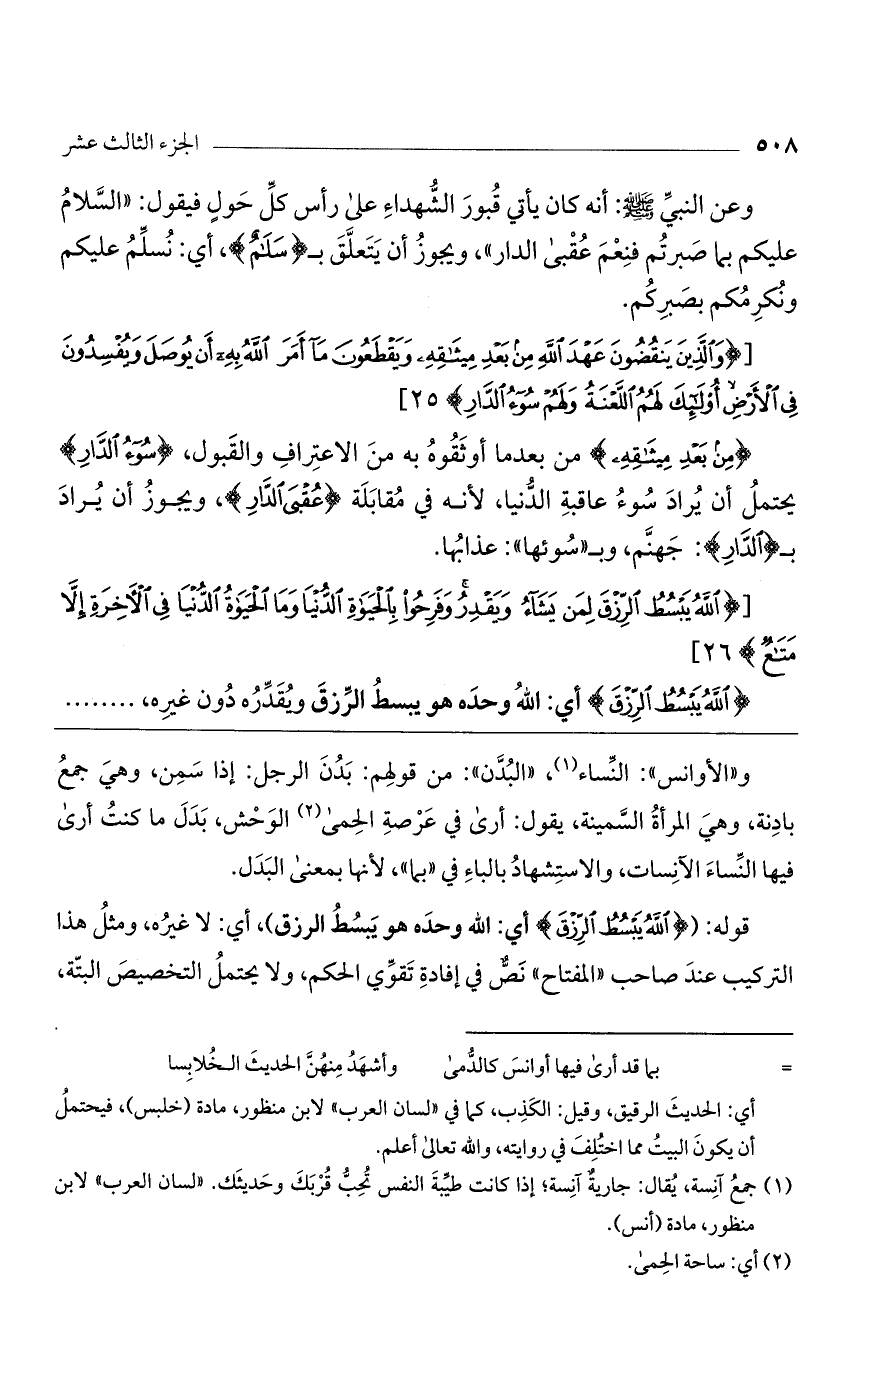 ٥٠٨ الجزء الثالث عشر
وعن النبيِّ ﷺ: أنه كان يأتي قُبورَ الشُّهداءِ علىٰ رأس كلِّ حَولٍ فيقول: «السَّلامُ
عليكم بما صَبرتُم فنِعْمَ عُقْبىٰ الدار»، ويجوزُ أن يَتَعلَّقَ بـ﴿سَلَٰمٌ﴾، أي: نُسلِّمُ عليكم
ونُكرِمُكم بصَبرِكُم.
[﴿وَٱلَّذِينَ يَنقُضُونَ عَهْدَ ٱللَّهِ مِنۢ بَعْدِ مِيثَٰقِهِۦ وَيَقْطَعُونَ مَآ أَمَرَ ٱللَّهُ بِهِۦٓ أَن يُوصَلَ وَيُفْسِدُونَ
فِى ٱلْأَرْضِ ۙ أُو۟لَٰٓئِكَ لَهُمُ ٱللَّعْنَةُ وَلَهُمْ سُوٓءُ ٱلدَّارِ﴾ ٢٥]
﴿مِنۢ بَعْدِ مِيثَٰقِهِۦ﴾ من بعدما أوثَقُوهُ به منَ الاعتِرافِ والقَبول، ﴿سُوٓءُ ٱلدَّارِ﴾
يحتملُ أن يُرادَ سُوءُ عاقبةِ الدُّنيا، لأنـه في مُقابَلَة ﴿عُقْبَى ٱلدَّارِ﴾، ويجـوزُ أن يُـرادَ
بـ﴿ٱلدَّارِ﴾: جَهنَّم، وبـ«سُوئها»: عذابُها.
[﴿ٱللَّهُ يَبْسُطُ ٱلرِّزْقَ لِمَن يَشَآءُ وَيَقْدِرُ ۚ وَفَرِحُوا۟ بِٱلْحَيَوٰةِ ٱلدُّنْيَا وَمَا ٱلْحَيَوٰةُ ٱلدُّنْيَا فِى ٱلْءَاخِرَةِ إِلَّا
مَتَٰعٌ﴾ ٢٦]
﴿ٱللَّهُ يَبْسُطُ ٱلرِّزْقَ﴾ أي: اللهُ وحدَه هو يبسطُ الرِّزقَ ويُقَدِّرُه دُون غيرِه، ........
و«الأوانس»: النِّساء(١)، «البُدَّن»: من قولِهم: بَدُنَ الرجل: إذا سَمِن، وهيَ جمعُ
بادِنة، وهيَ المرأةُ السَّمينة، يقول: أرىٰ في عَرْصةِ الحِمىٰ(٢) الوَحْش، بَدَلَ ما كنتُ أرىٰ
فيها النِّساءَ الآنِسات، والاستِشهادُ بالباءِ في «بما»، لأنها بمعنىٰ البَدَل.
قوله: (﴿ٱللَّهُ يَبْسُطُ ٱلرِّزْقَ﴾ أي: الله وحدَه هو يَبسُطُ الرزق)، أي: لا غيرُه، ومثلُ هذا
التركيب عندَ صاحب «المفتاح» نَصٌّ في إفادةِ تَقوِّي الحكم، ولا يحتملُ التخصيصَ البتّة،
= بما قد أرىٰ فيها أوانسَ كالدُّمىٰ وأشهَدُ مِنهُنَّ الحديثَ الـخُلابِسا
أي: الحديثَ الرقيق، وقيل: الكَذِب، كما في «لسان العرب» لابن منظور، مادة (خلبس)، فيحتملُ
أن يكونَ البيتُ مما اختُلِفَ في روايته، والله تعالىٰ أعلم.
(١) جمعُ آنِسة، يُقال: جاريةٌ آنِسة؛ إذا كانت طيِّبةَ النفس تُحِبُّ قُرْبَكَ وحَديثَك. «لسان العرب» لابن
منظور، مادة (أنس).
(٢) أي: ساحة الحِمىٰ.